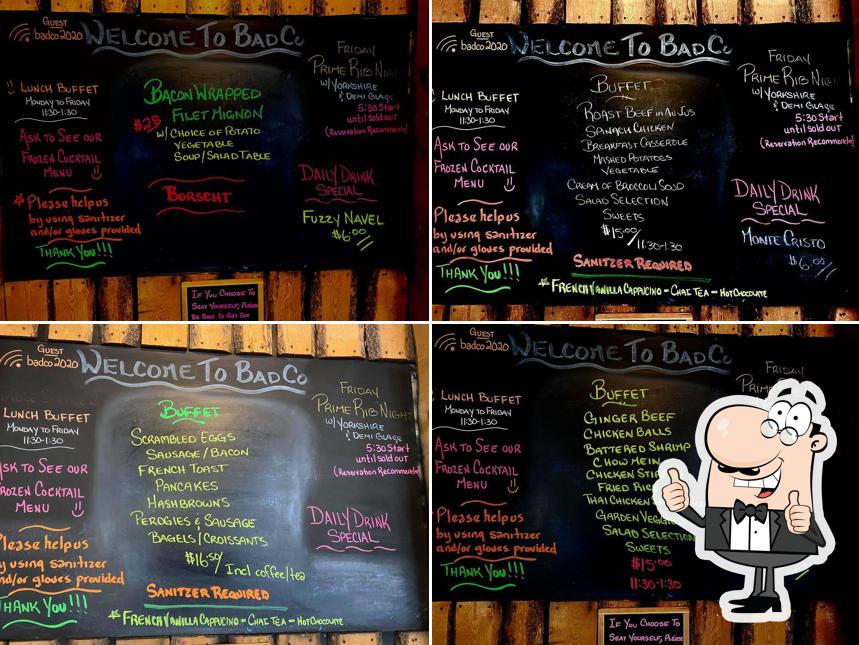 Guest
badco2020
Welcome To BadCo
Lunch Buffet
Monday to Friday
11:30-1:30
Ask to See our
Frozen Cocktail
Menu
Please help us
by using sanitizer
and/or gloves provided
Thank You!!!
Bacon Wrapped
Filet Mignon
$28
w/ Choice of Potato
Vegetable
Soup/Salad Table
Borscht
Friday
Prime Rib Night
w/ Yorkshire
& Demi Glace
5:30 Start
until sold out
(Reservation Recommend
Daily Drink
Special
Fuzzy Navel
$6.00
If You Choose To
Seat Yourself, Please
Be Sure to Get the
Guest
badco2020
Welcome To BadCo
Lunch Buffet
Monday to Friday
11:30-1:30
Ask to See our
Frozen Cocktail
Menu
Please help us
by using sanitizer
and/or gloves provided
Thank You!!!
Buffet
Roast Beef in Au Jus
Chicken
Breakfast Casserole
Mashed Potatoes
Vegetable
Cream of Broccoli Soup
Salad Selection
Sweets
$15.00/11:30-1:30
Sanitizer Required
French Vanilla Cappucino - Chai Tea - Hot Chocolate
Friday
Prime Rib Night
w/ Yorkshire
& Demi Glace
5:30 Start
until sold out
(Reservation Recommended
Daily Drink
Special
Monte Cristo
$6.00
Guest
badco2020
Welcome To BadCo
Lunch Buffet
Monday to Friday
11:30-1:30
Ask to See our
Frozen Cocktail
Menu
Please help us
by using sanitizer
and/or gloves provided
Thank You!!!
Buffet
Scrambled Eggs
Sausage/Bacon
French Toast
Pancakes
Hashbrowns
Perogies & Sausage
Bagels/Croissants
$16.50/Incl coffee/tea
Sanitizer Required
French Vanilla Cappucino - Chai Tea - Hot Chocolate
Friday
Prime Rib Night
w/ Yorkshire
& Demi Glace
5:30 Start
until sold out
(Reservation Recommended
Daily Drink
Special
Guest
badco2020
Welcome To BadCo
Lunch Buffet
Monday to Friday
11:30-1:30
Ask to See our
Frozen Cocktail
Menu
Please help us
by using sanitizer
and/or gloves provided
Thank You!!!
Buffet
Ginger Beef
Chicken Balls
Battered Shrimp
Chow Mein
Chicken Stir
Fried Ric
Thai Chicken
Garden Veggi
Salad Selection
Sweets
$15.00
11:30-1:30
Friday
Prime
If You Choose To
Seat Yourself, Please